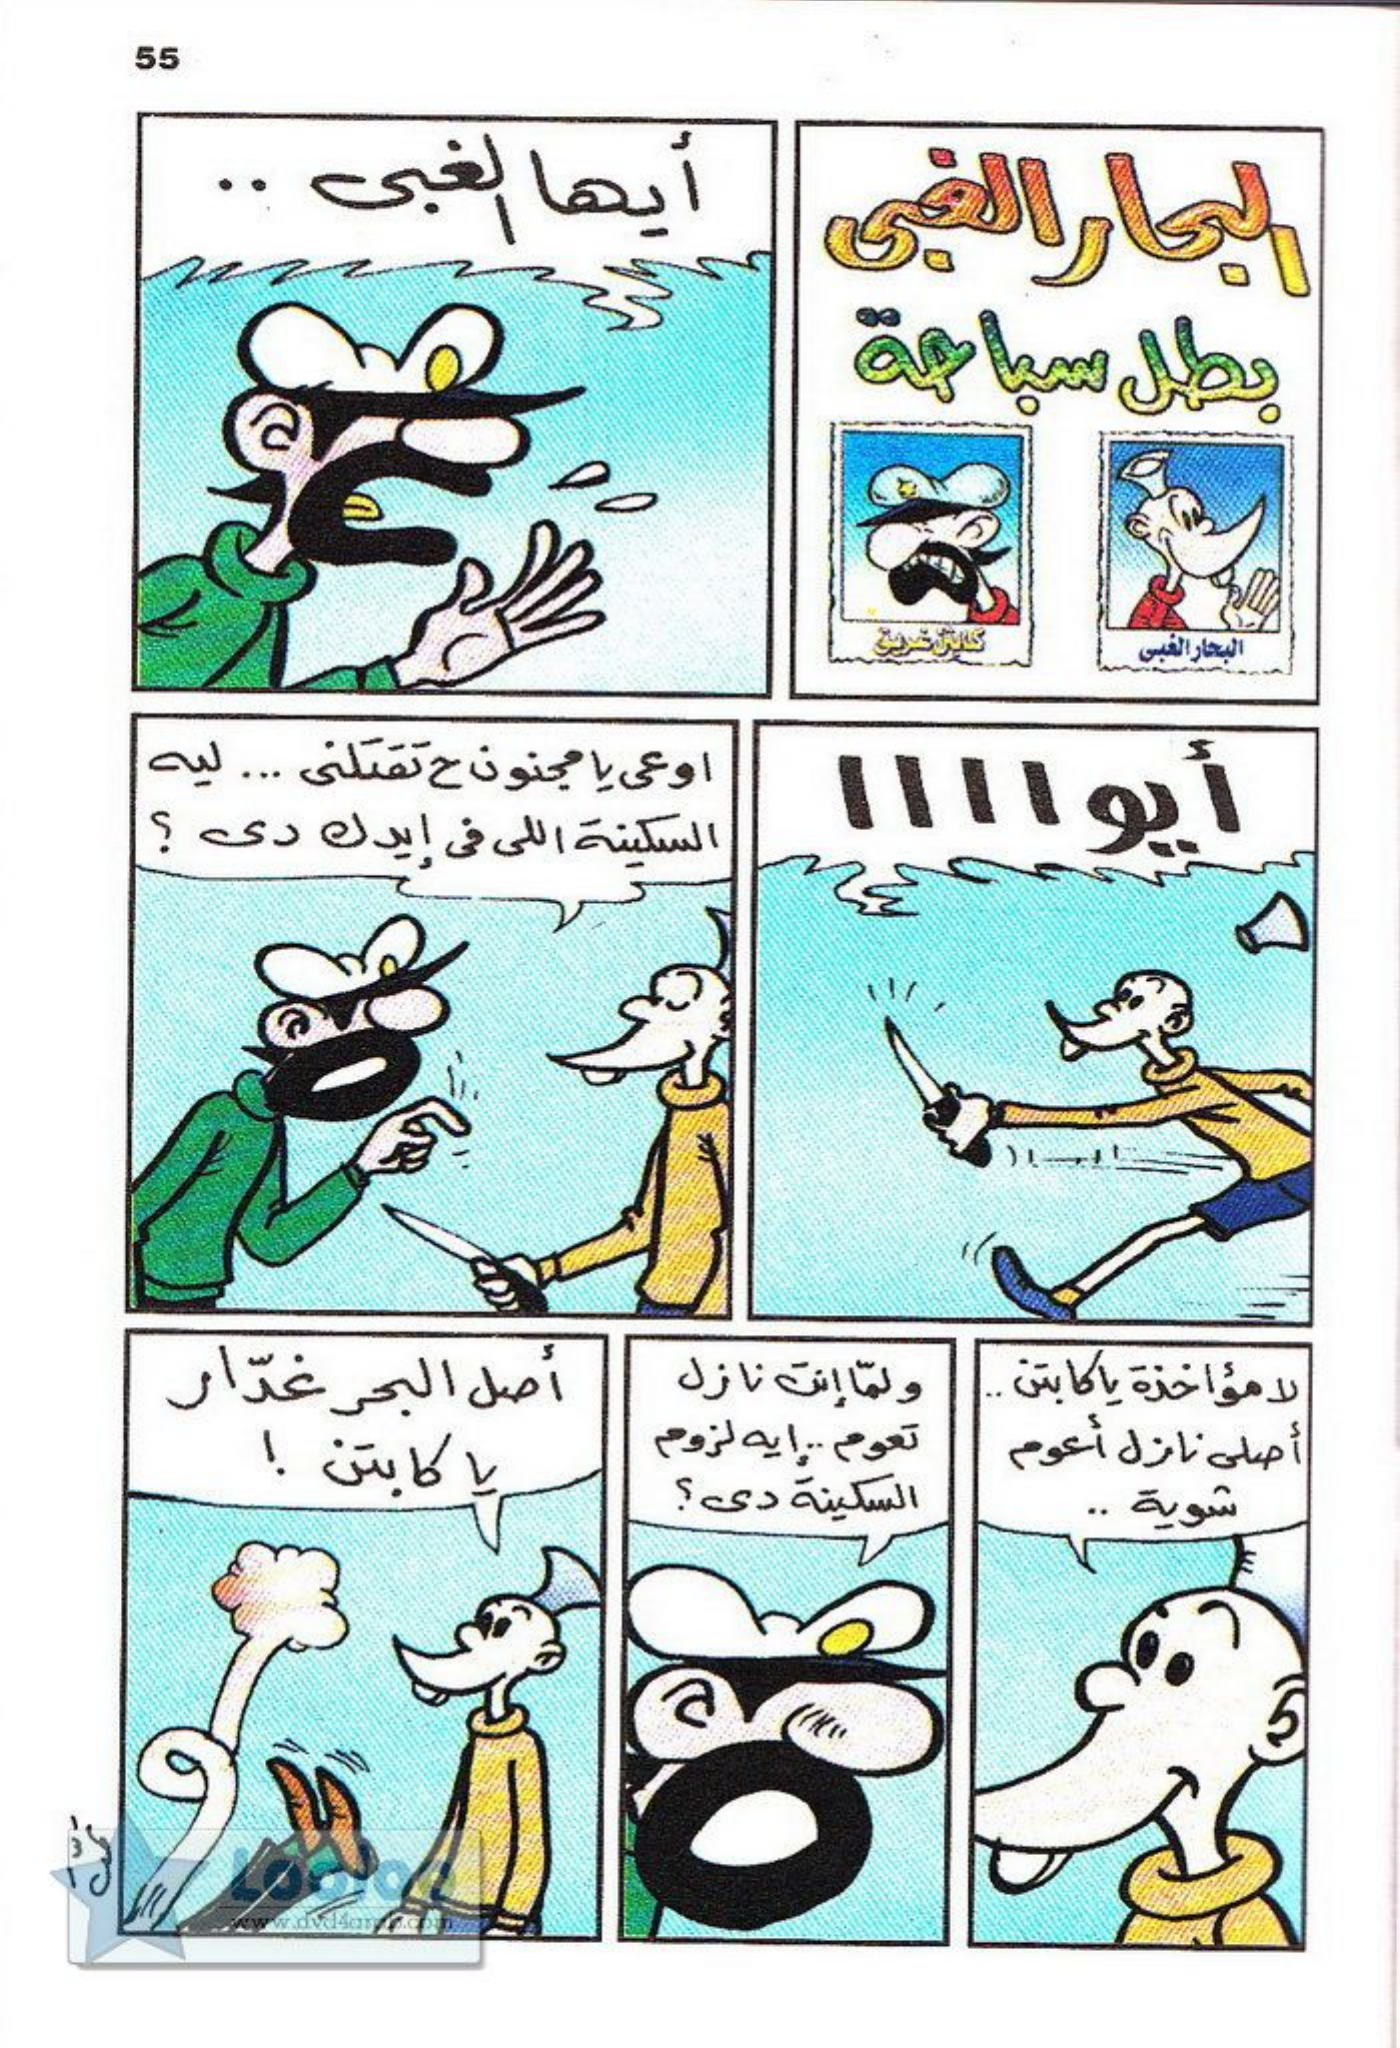 55
البحار الغبى
بطل سباحة
البحار الغبى
أيها الغبى ..
أيوااااا
اوعى يا مجنون ح تقتلنى ... ليه
السكينة اللى فى إيدك دى ؟
لا مؤاخذة يا كابتن ..
أصلى نازل أعوم
شوية ..
ولمّا إنت نازل
تعوم .. إيه لزوم
السكينة دى ؟
أصل البحر غدّار
يا كابتن !
www.dvd4arab.com